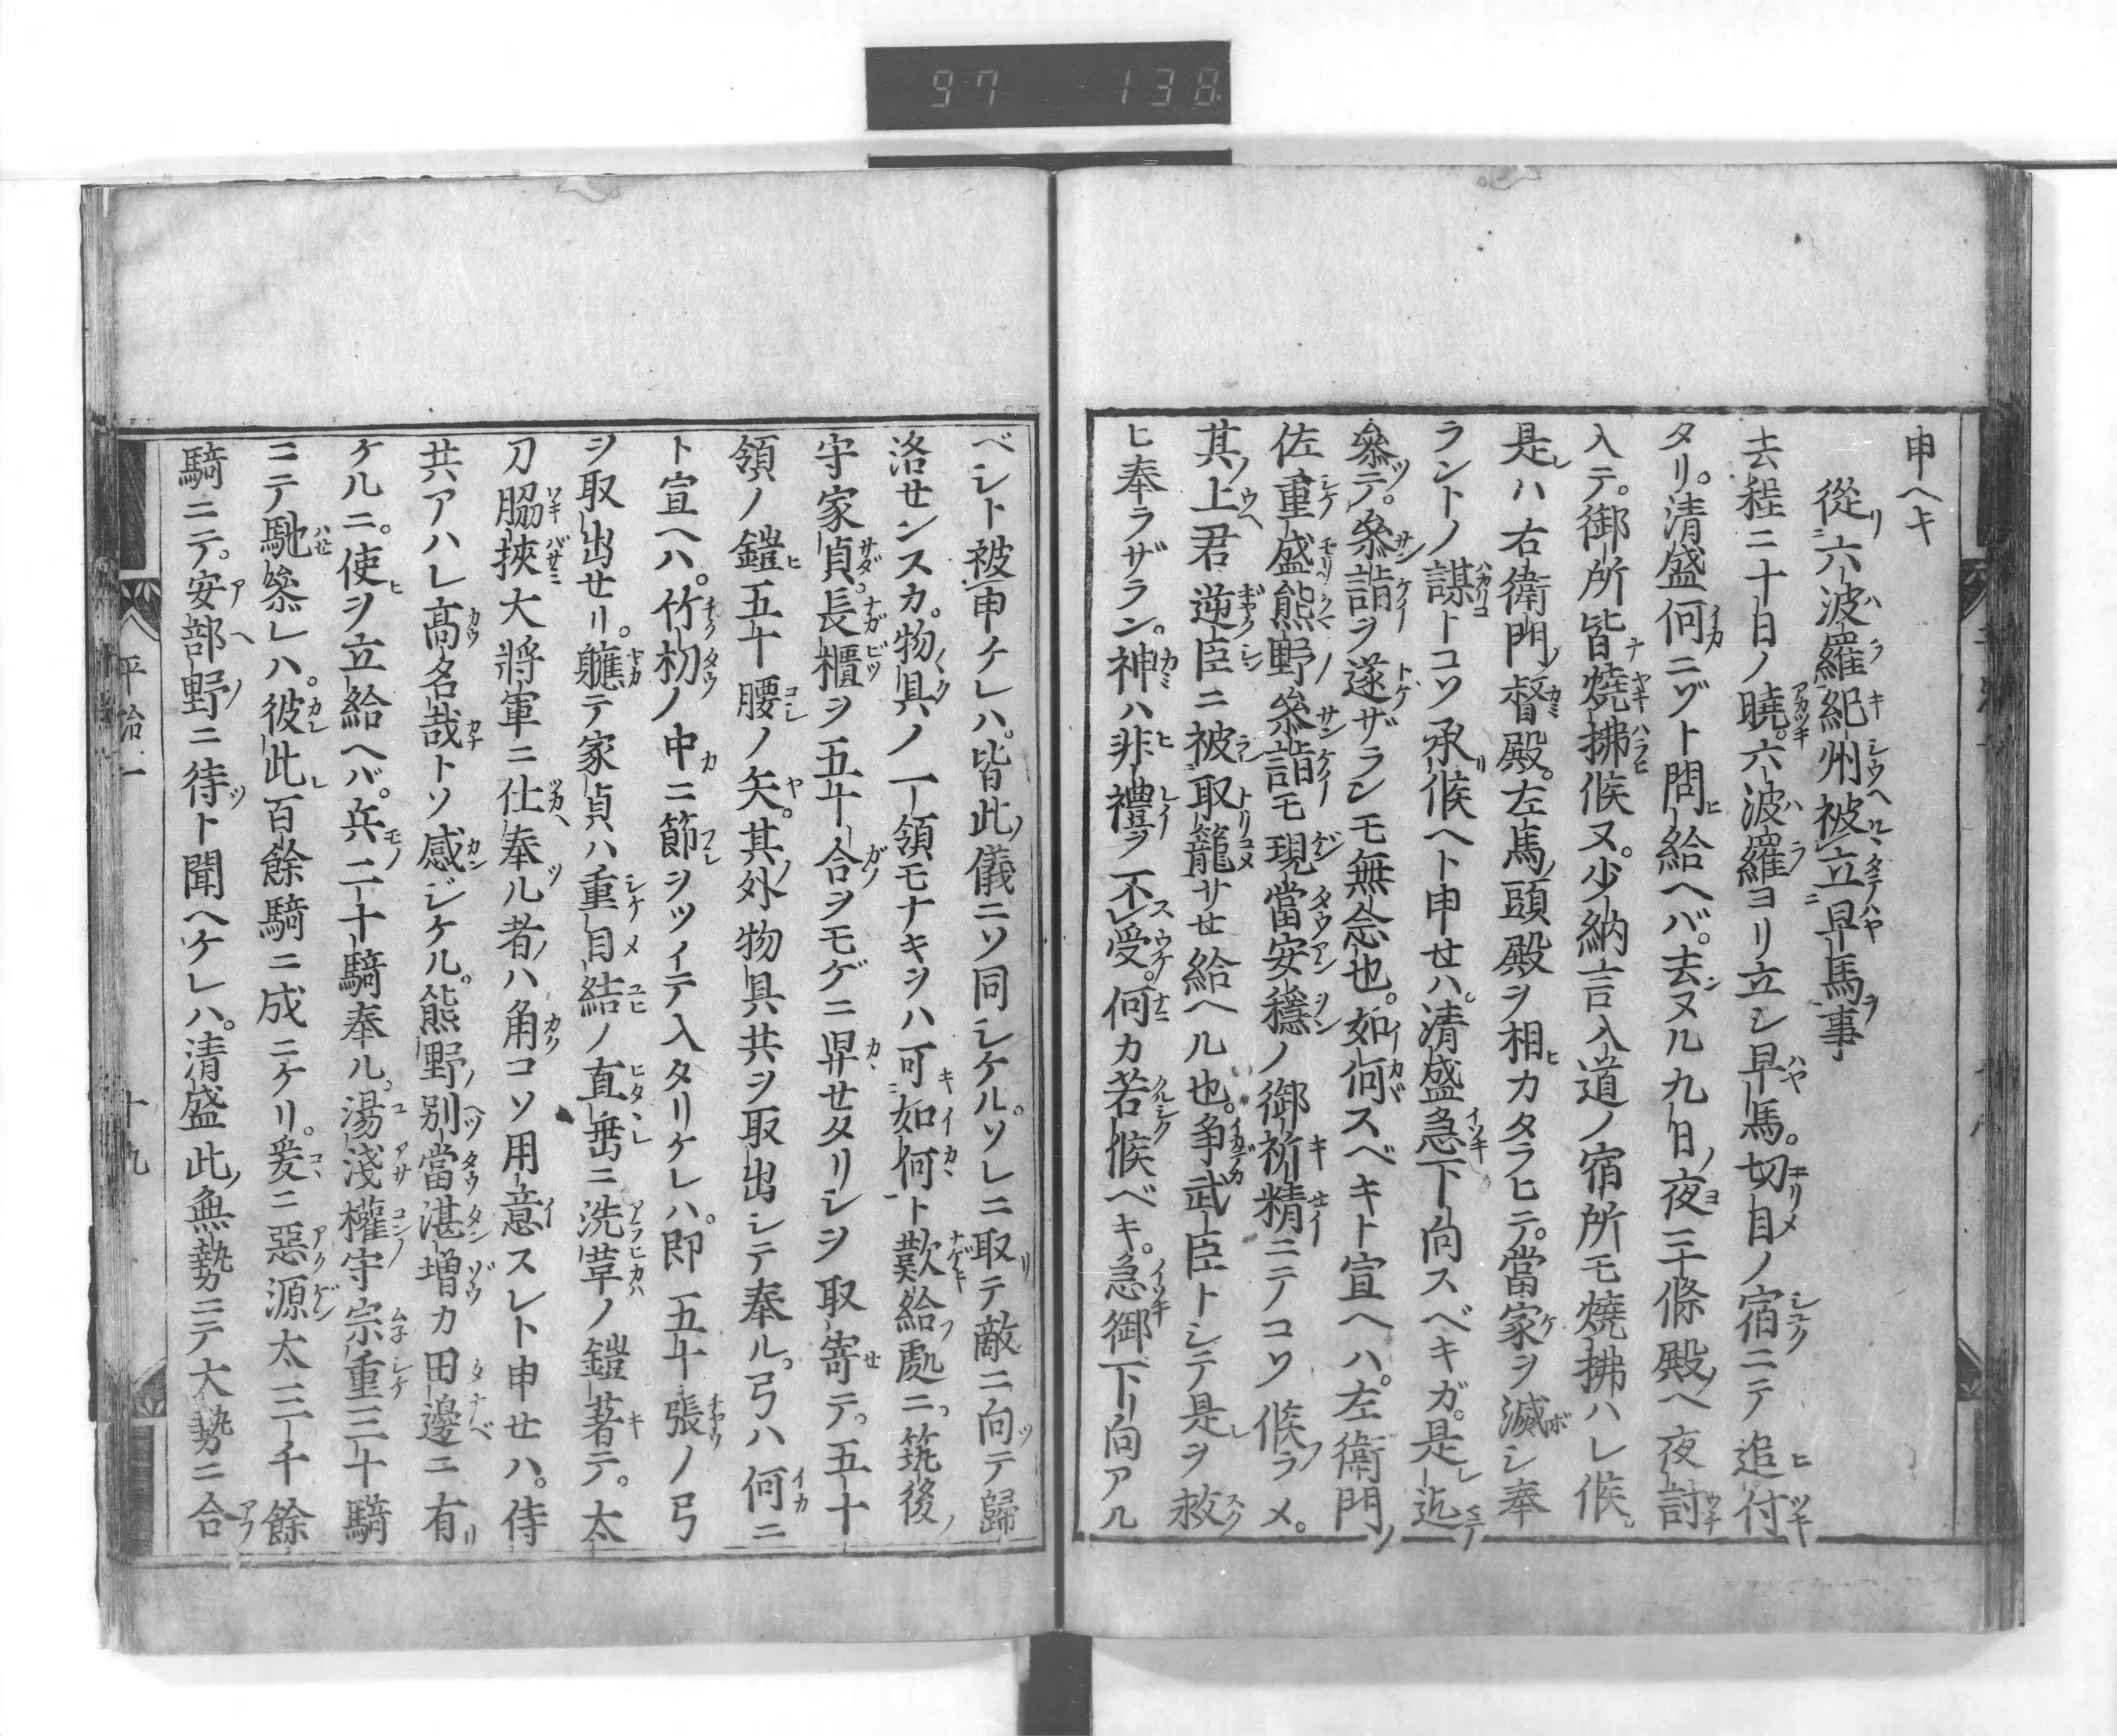 97 138
申ヘキ
從六波羅紀州被立早馬事
去程ニ十日ノ曉六波羅ヨリ立シ早馬切目ノ宿ニテ追付
タリ清盛何ニゾト問給ヘバ去ヌル九日ノ夜三條殿ヘ夜討
入テ御所皆燒拂候ヌ少納言入道ノ宿所モ燒拂ハレ候
是ハ右衛門督殿左馬頭殿ヲ相カタラヒテ當家ヲ滅シ奉
ラントノ謀トコソ承候ヘト申セハ清盛急下向スベキガ是近
參テ參詣ヲ遂ザランモ無念也如何スベキト宣ヘハ左衛門
佐重盛熊野參詣モ現當安穩ノ御祈精ニテコソ候ラメ
其上君逆臣ニ被取籠サセ給ヘル也争武臣トシテ是ヲ救
ヒ奉ラザラン神ハ非禮ヲ不受何カ若候ベキ急御下向アル
ベシト被申ケレハ皆此儀ニソ同シケルソレニ取テ敵ニ向テ歸
洛センスカ物具ノ一領モナキヲハ可如何ト歎給處ニ筑後
守家貞長櫃ヲ五十合ヲモゲニ舁セタリシヲ取寄テ五十
領ノ鎧五十腰ノ矢其外物具共ヲ取出シテ奉ル弓ハ何ニ
ト宣ヘハ竹朸ノ中ニ節ヲツイテ入タリケレハ即五十張ノ弓
ヲ取出セリ軈テ家貞ハ重目結ノ直垂ニ洗革ノ鎧著テ太
刀脇挾大將軍ニ仕奉ル者ハ角コソ用意スレト申セハ侍
共アハレ高名哉トソ感ジケル熊野別當湛増カ田邊ニ有
ケルニ使ヲ立給ヘバ兵二十騎奉ル湯淺權守宗重三十騎
ニテ馳參レハ彼此百餘騎ニ成ニケリ爰ニ惡源太三千餘
騎ニテ安部野ニ待ト聞ヘケレハ清盛此無勢ニテ大勢ニ合
平治一
十九